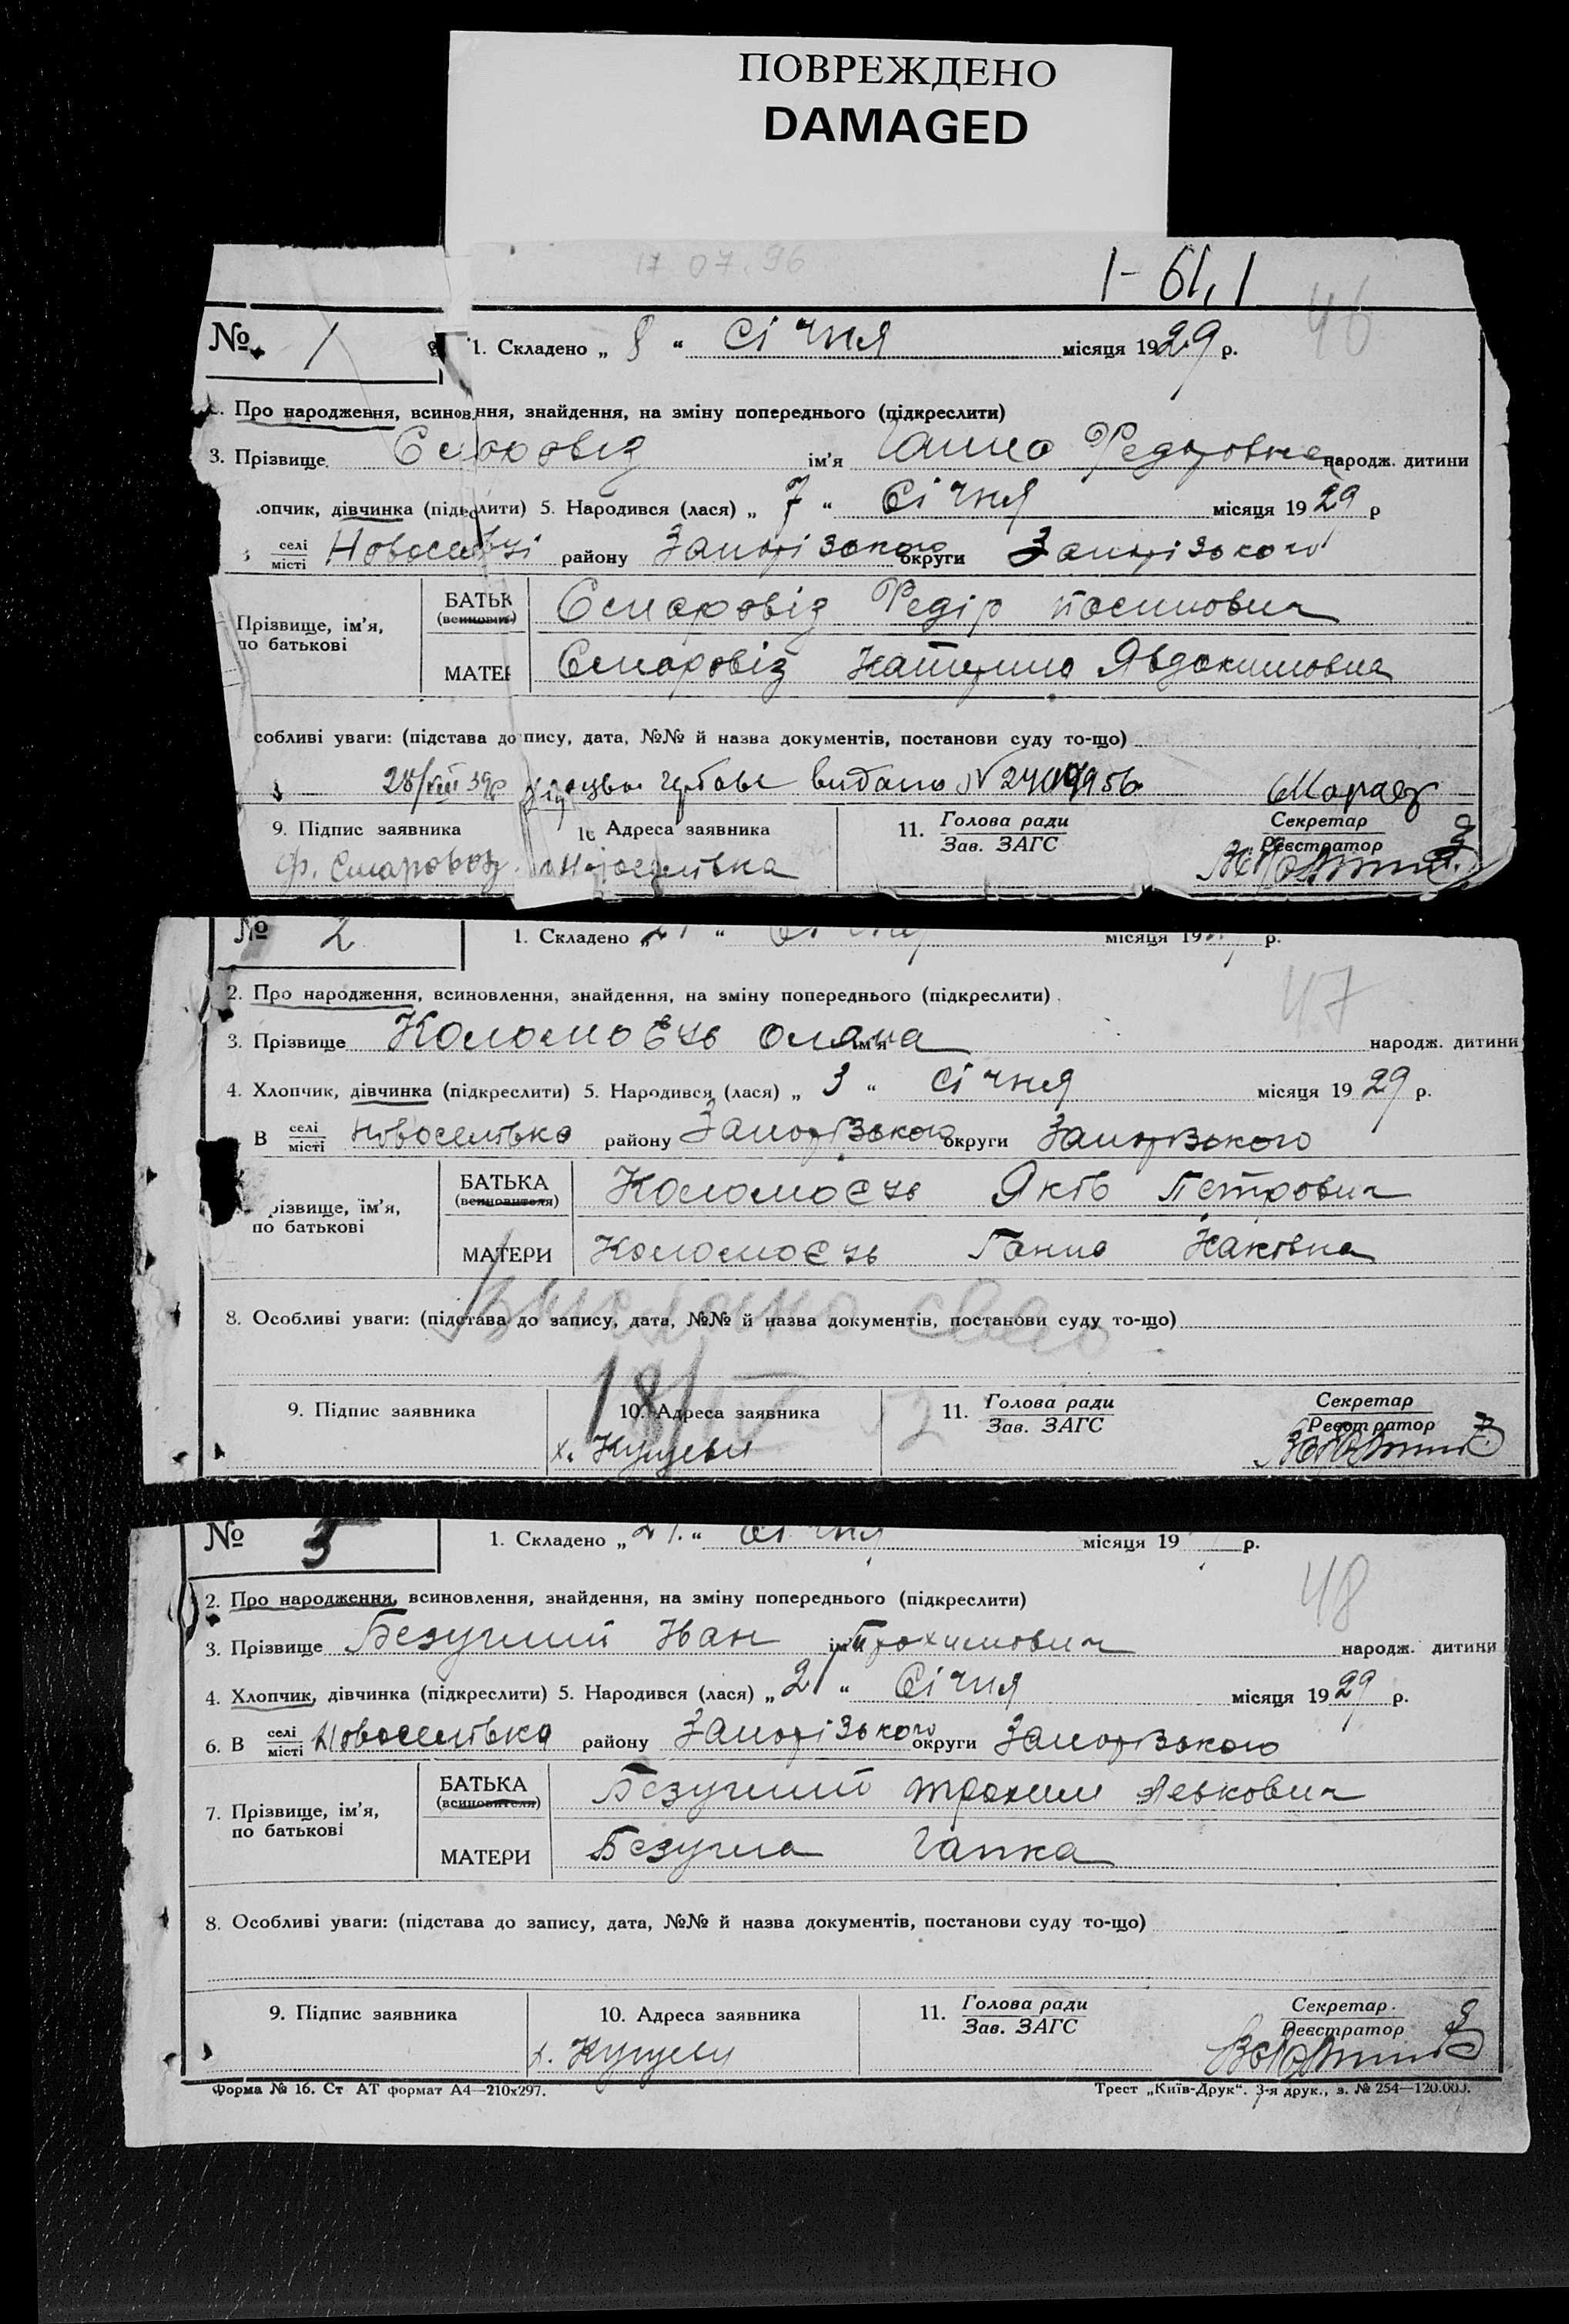 ПОВРЕЖДЕНО
DAMAGED
17.07.96
1-61,1
46
№ 1
1. Складено „ 8 “ Січня місяця 1929 р.
Про народження, всинов ння, знайдення, на зміну попереднього (підкреслити)
3. Прізвище ім'я Федоровна народж. дитини
опчик, дівчинка (підкреслити) 5. Народився (лася) „ 7 “ Січня місяця 1929 р
селі
місті Новоселівці району Запорізького округи Запорізького
Прізвище, ім'я,
по батькові
БАТЬК
(всиновит)
Федір
МАТЕР
Явдокимовна
собливі уваги: (підстава до пису, дата, №№ й назва документів, постанови суду то-що)
видано N
9. Підпис заявника
Адреса заявника
Новоселівка
11. Голова ради
Зав. ЗАГС
Секретар
Реєстратор
№ 2
1. Складено „ 21 “ Січня місяця 19 р.
47
2. Про народження, всиновлення, знайдення, на зміну попереднього (підкреслити)
3. Прізвище Коломоєць Оляна ім'я народж. дитини
4. Хлопчик, дівчинка (підкреслити) 5. Народився (лася) „ 3 “ Січня місяця 1929 р.
В селі
місті Новоселівка району Запорізького округи Запорізького
різвище, ім'я,
по батькові
БАТЬКА
(всиновителя)
Коломоєць Яків Петрович
МАТЕРИ
Коломоєць Ганна
8. Особливі уваги: (підстава до запису, дата, №№ й назва документів, постанови суду то-що)
9. Підпис заявника
10. Адреса заявника
х. Кущеви
11. Голова ради
Зав. ЗАГС
Секретар
Реєстратор
№ 3
1. Складено „ 21. “ Січня місяця 19 р.
48
2. Про народження, всиновлення, знайдення, на зміну попереднього (підкреслити)
3. Прізвище Безуглий Іван ім'я Трохимович народж. дитини
4. Хлопчик, дівчинка (підкреслити) 5. Народився (лася) „ 21 “ Січня місяця 1929 р.
6. В селі
місті Новоселівка району Запорізького округи Запорізького
7. Прізвище, ім'я,
по батькові
БАТЬКА
(всиновителя)
Безуглий Трохим Левкович
МАТЕРИ
Безугла Гапка
8. Особливі уваги: (підстава до запису, дата, №№ й назва документів, постанови суду то-що)
9. Підпис заявника
10. Адреса заявника
х. Кущеви
11. Голова ради
Зав. ЗАГС
Секретар
Реєстратор
Форма № 16. Ст АТ формат А4—210х297.
Трест „Київ-Друк“. 3-я друк., з. № 254—120.000.